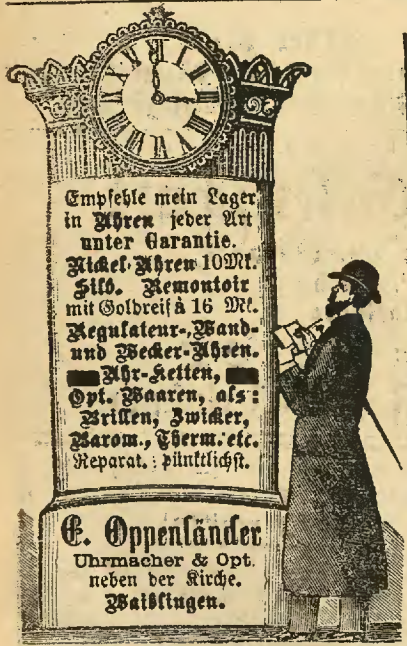 Empfehle mein Lager
in Uhren jeder Art
unter Garantie.
Nickel-Uhren 10Mk.
Silb. Remontoir
mit Goldreif à 16 Mk.
Regulateur-, Wand-
und Wecker-Uhren.
Uhr-Ketten,
Opt. Waaren, als:
Brillen, Zwicker,
Barom., Therm. etc.
Reparat. : pünktlichst.
E. Oppenländer
Uhrmacher & Opt.
neben der Kirche.
Waiblingen.